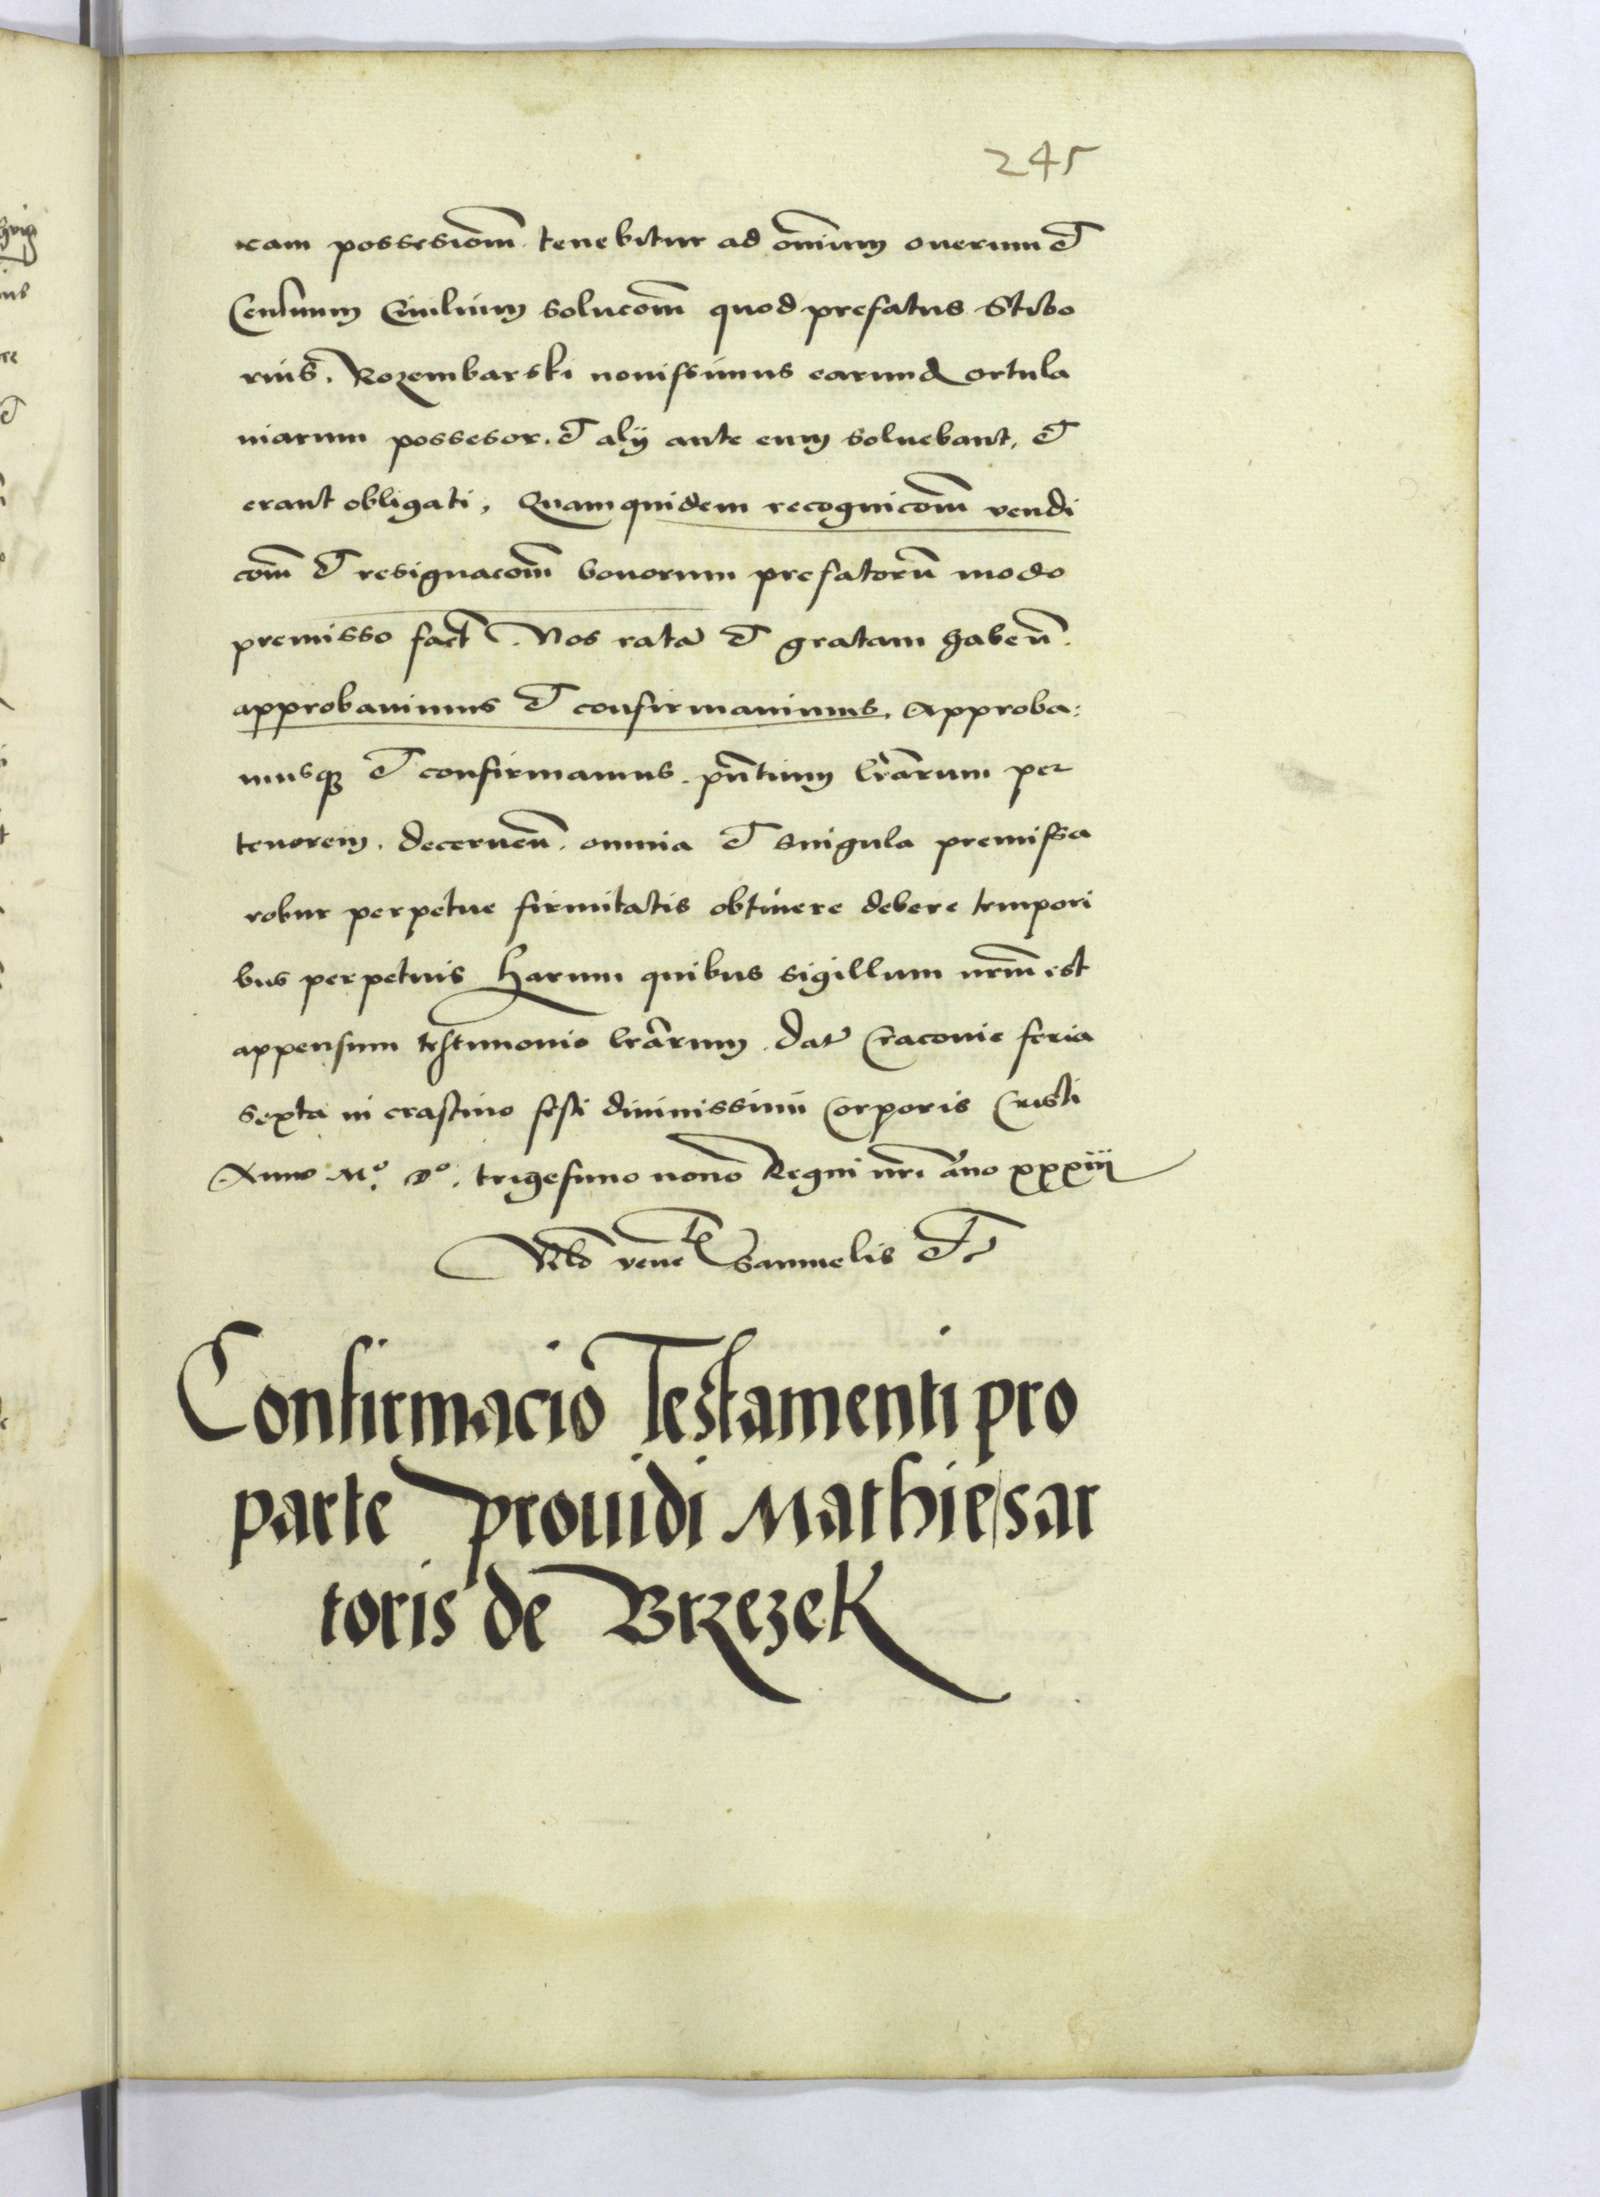 245
eam possesiom̄ tenebitur ad om̄ium onerum et
Censuum Ciuilium solucom̄ quod prefatus Stibo
rius. Rozembarski nouissimus earund ortula
niarum possesor. et alÿ ante eum soluebant, et
erant obligati, Quamquidem recognicom̄ vendi
com̄ et resignacom̄ bonorum prefatorū modo
premisso fact. Nos ratā et gratam haben̄.
approbauimus et confirmauimus. Approba:
musq₃ et confirmamus. pn̄tium lr̄arum per
tenorem. decernen̄. omnia et singula premissa
robur perpetue firmitatis obtinere debere tempori
bus perpetuis harum quibus sigillum nrm̄ est
appensum testimonio lr̄arum. Dat Cracouie feria
sexta in crastino festi diuinissimi Corporis Cristi
Anno Mº. Dº. trigesimo nono Regni nr̄i āno xxxiii
Samuelis etc
Confirmacio Testamenti pro
parte prouidi Mathie sar
toris de Brzezek